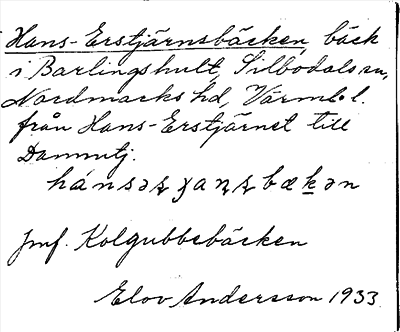 Hans-Erstjärnsbäcken, bäck
i Barlingshult, Silbodals sn,
Nordmarks hd, Värml. l.
från Hans-Erstjärnet till
Dammtj.
Jmf. Kolgubbebäcken
Elov Andersson 1933